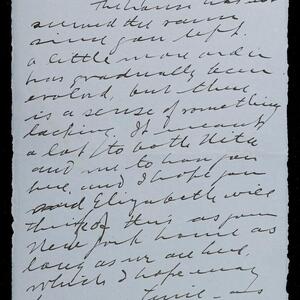 The house has not
seemed the same
since you left.
a little more order
has gradually been
evolved, but there
is a sense of something
lacking. It meant
a lot to both Nita
and me to have you
here, and I hope you
and Elizabeth will
think of this as your
New York home as
long as we are here,
which I hope may